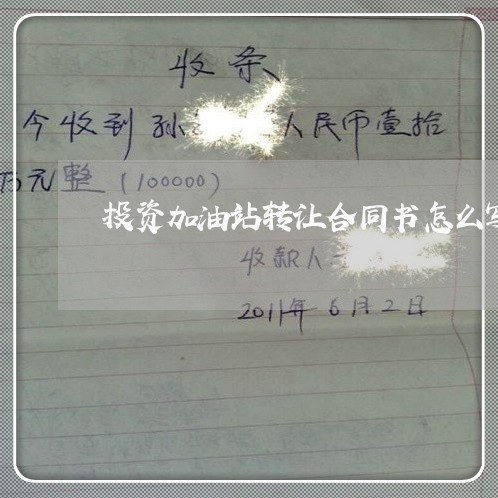 收条
今收到孙 人民币壹拾
万元整（100000）
投资加油站转让合同书怎么写
收款人
2011年6月2日